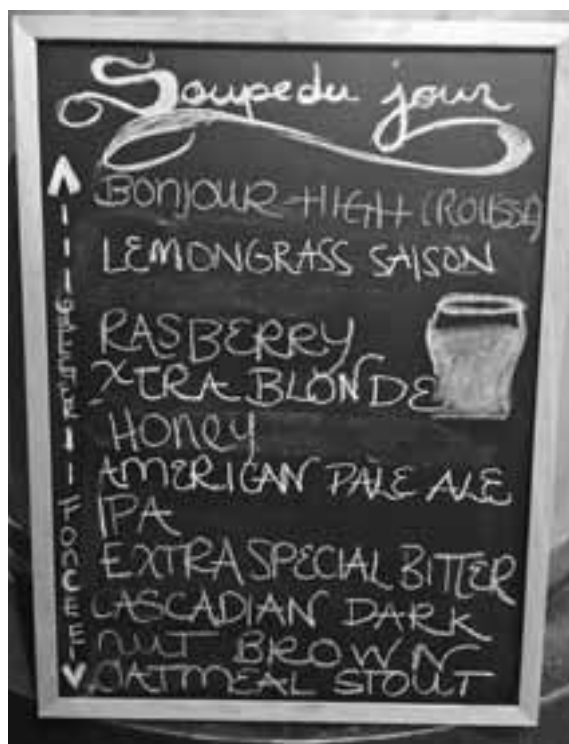 Soupe du jour
BONJOUR-HIGH (ROUSSE)
LEMONGRASS SAISON
RASBERRY
XTRA BLONDE
HONEY
AMERICAN PALE ALE
IPA
EXTRA SPECIAL BITTER
CASCADIAN DARK
NUT BROWN
OATMEAL STOUT
FONCEE